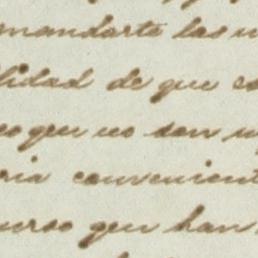 mandarte las
lidad de que es
que no son
ria convenient
urso que han